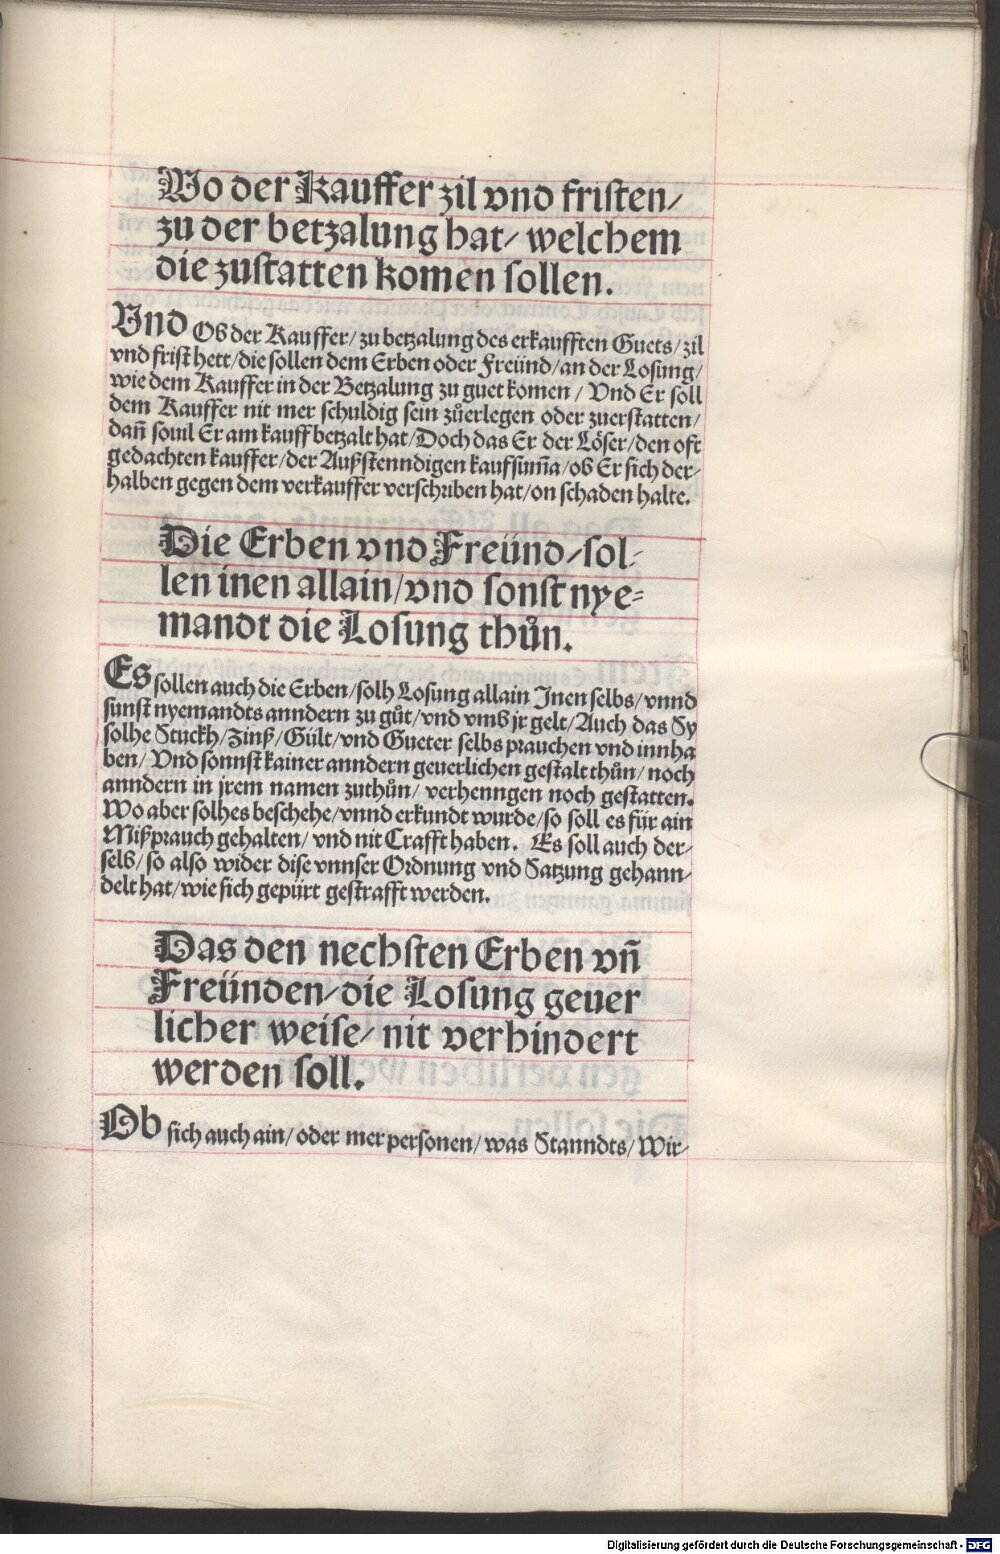 Wo der Kauffer zil vnd fristen/
zu der betzalung hat/ welchem
die zustatten komen sollen.
Vnd Ob der Kauffer/ zu betzalung des erkaufften Guets/ zil
vnd frist hett/ die sollen dem Erben oder Freünd/ an der Losung/
wie dem Kauffer in der Betzalung zu guet komen/ Vnd Er soll
dem Kauffer nit mer schuldig sein zůerlegen oder zuerstatten/
dañ souil Er am kauff betzalt hat/ Doch das Er der Löser/ den oft
gedachten kauffer/ der Außstenndigen kaufsum̃a/ ob Er sich der-
halben gegen dem verkauffer verschriben hat/ on schaden halte.
Die Erben vnd Freünd/ sol-
len inen allain/ vnd sonst nye-
mandt die Losung thůn.
Es sollen auch die Erben/ solh Losung allain Inen selbs/ vnnd
sunst nyemandts anndern zu gůt/ vnd vmb jr gelt/ Auch das Sy
solhe Stuckh/ Zinß/ Gült/ vnd Gueter selbs prauchen vnd innha
ben/ Vnd sonnst kainer anndern geuerlichen gestalt thůn/ noch
anndern in jrem namen zuthůn/ verhenngen noch gestatten.
Wo aber solhes beschehe/ vnnd erkundt wurde/ so soll es für ain
Mißprauch gehalten/ vnd nit Crafft haben. Es soll auch der-
selb/ so also wider dise vnnser Ordnung vnd Satzung gehann-
delt hat/ wie sich gepürt gestrafft werden.
Das den nechsten Erben vñ
Freünden/ die Losung geuer
licher weise/ nit verhindert
werden soll.
Ob sich auch ain/ oder mer personen/ was Stanndts/ Wir-
Digitalisierung gefördert durch die Deutsche Forschungsgemeinschaft - DFG